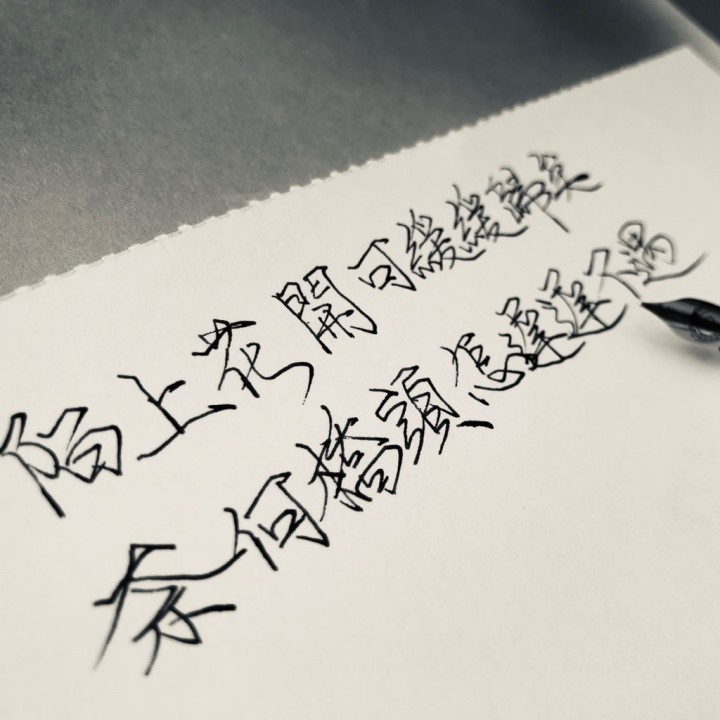 陌上花開可緩緩歸矣
奈何橋頭怎遲遲不遇